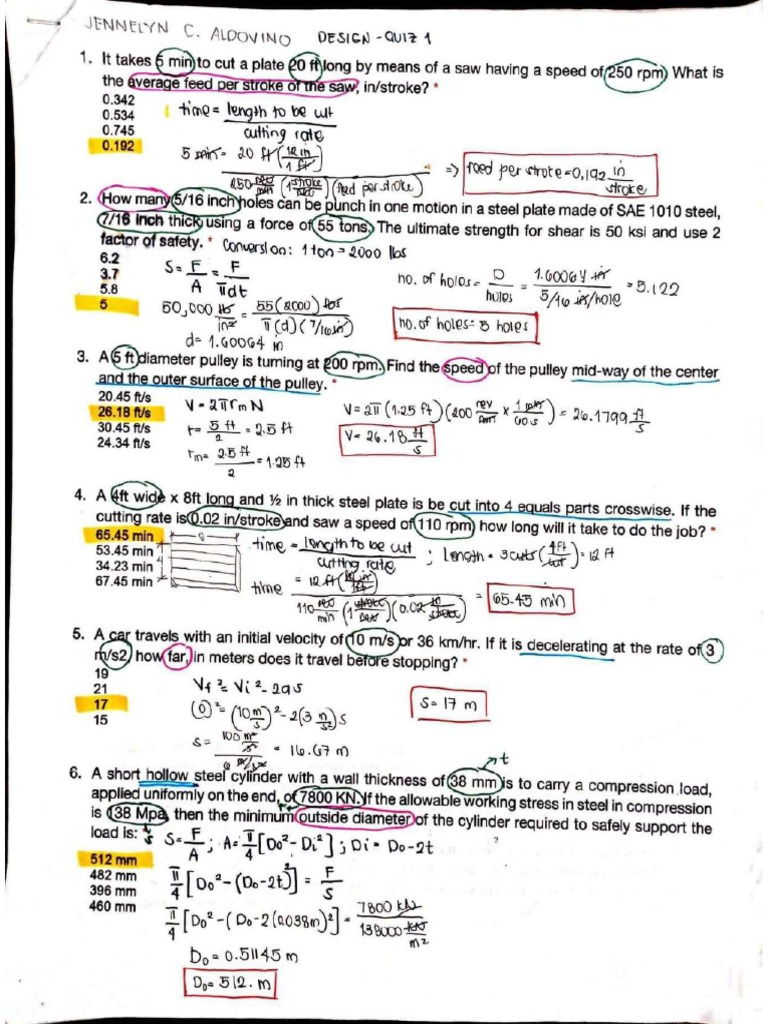 JENNELYN C. ALDOVINO DESIGN - QUIZ 1
1. It takes 5 min to cut a plate 20 ft long by means of a saw having a speed of 250 rpm. What is
the average feed per stroke of the saw, in/stroke? *
0.342
0.534
0.745
0.192
time = length to be cut / cutting rate
5 min = 20 ft (12 in / 1 ft) / 250 rev/min (1 stroke / rev) (feed per stroke)
=> feed per stroke = 0.192 in/stroke
2. How many 5/16 inch holes can be punch in one motion in a steel plate made of SAE 1010 steel,
7/16 inch thick using a force of 55 tons. The ultimate strength for shear is 50 ksi and use 2
factor of safety. * Conversion: 1 ton = 2000 lbs
6.2
3.7
5.8
5
S = F/A = F/πdt
50,000 lb/in² = 55 (2000) lbs / π(d)(7/16 in)
d = 1.60064 in
no. of holes = D/holes = 1.60064 in / 5/16 in/hole = 5.122
no. of holes = 5 holes
3. A 5 ft diameter pulley is turning at 200 rpm. Find the speed of the pulley mid-way of the center
and the outer surface of the pulley. *
20.45 ft/s
26.18 ft/s
30.45 ft/s
24.34 ft/s
V = 2πrmN
r = 5 ft / 2 = 2.5 ft
rm = 2.5 ft / 2 = 1.25 ft
V = 2π (1.25 ft) (200 rev/min x 1 min/60 s) = 26.1799 ft/s
V = 26.18 ft/s
4. A 4ft wide x 8ft long and ½ in thick steel plate is be cut into 4 equals parts crosswise. If the
cutting rate is 0.02 in/stroke and saw a speed of 110 rpm, how long will it take to do the job? *
65.45 min
53.45 min
34.23 min
67.45 min
8
4
time = length to be cut / cutting rate ; length = 3 cuts (4 ft / cut) = 12 ft
time = 12 ft (12 in / ft) / 110 rev/min (1 stroke / rev) (0.02 in / stroke) = 65.45 min
5. A car travels with an initial velocity of 10 m/s or 36 km/hr. If it is decelerating at the rate of 3
m/s2, how far, in meters does it travel before stopping? *
19
21
17
15
Vf² = Vi² - 2as
(0)² = (10 m/s)² - 2(3 m/s²) s
s = 100 m²/s² / 6 m/s² = 16.67 m
S = 17 m
6. A short hollow steel cylinder with a wall thickness of 38 mm is to carry a compression load,
t
applied uniformly on the end, of 7800 KN. If the allowable working stress in steel in compression
is 138 Mpa, then the minimum outside diameter of the cylinder required to safely support the
load is:
512 mm
482 mm
396 mm
460 mm
S = F/A ; A = π/4 [Do² - Di²] ; Di = Do - 2t
π/4 [Do² - (Do - 2t)²] = F/S
π/4 [Do² - (Do - 2(0.038m)²] = 7800 kN / 138000 kN/m²
Do = 0.51145 m
Do = 512. m